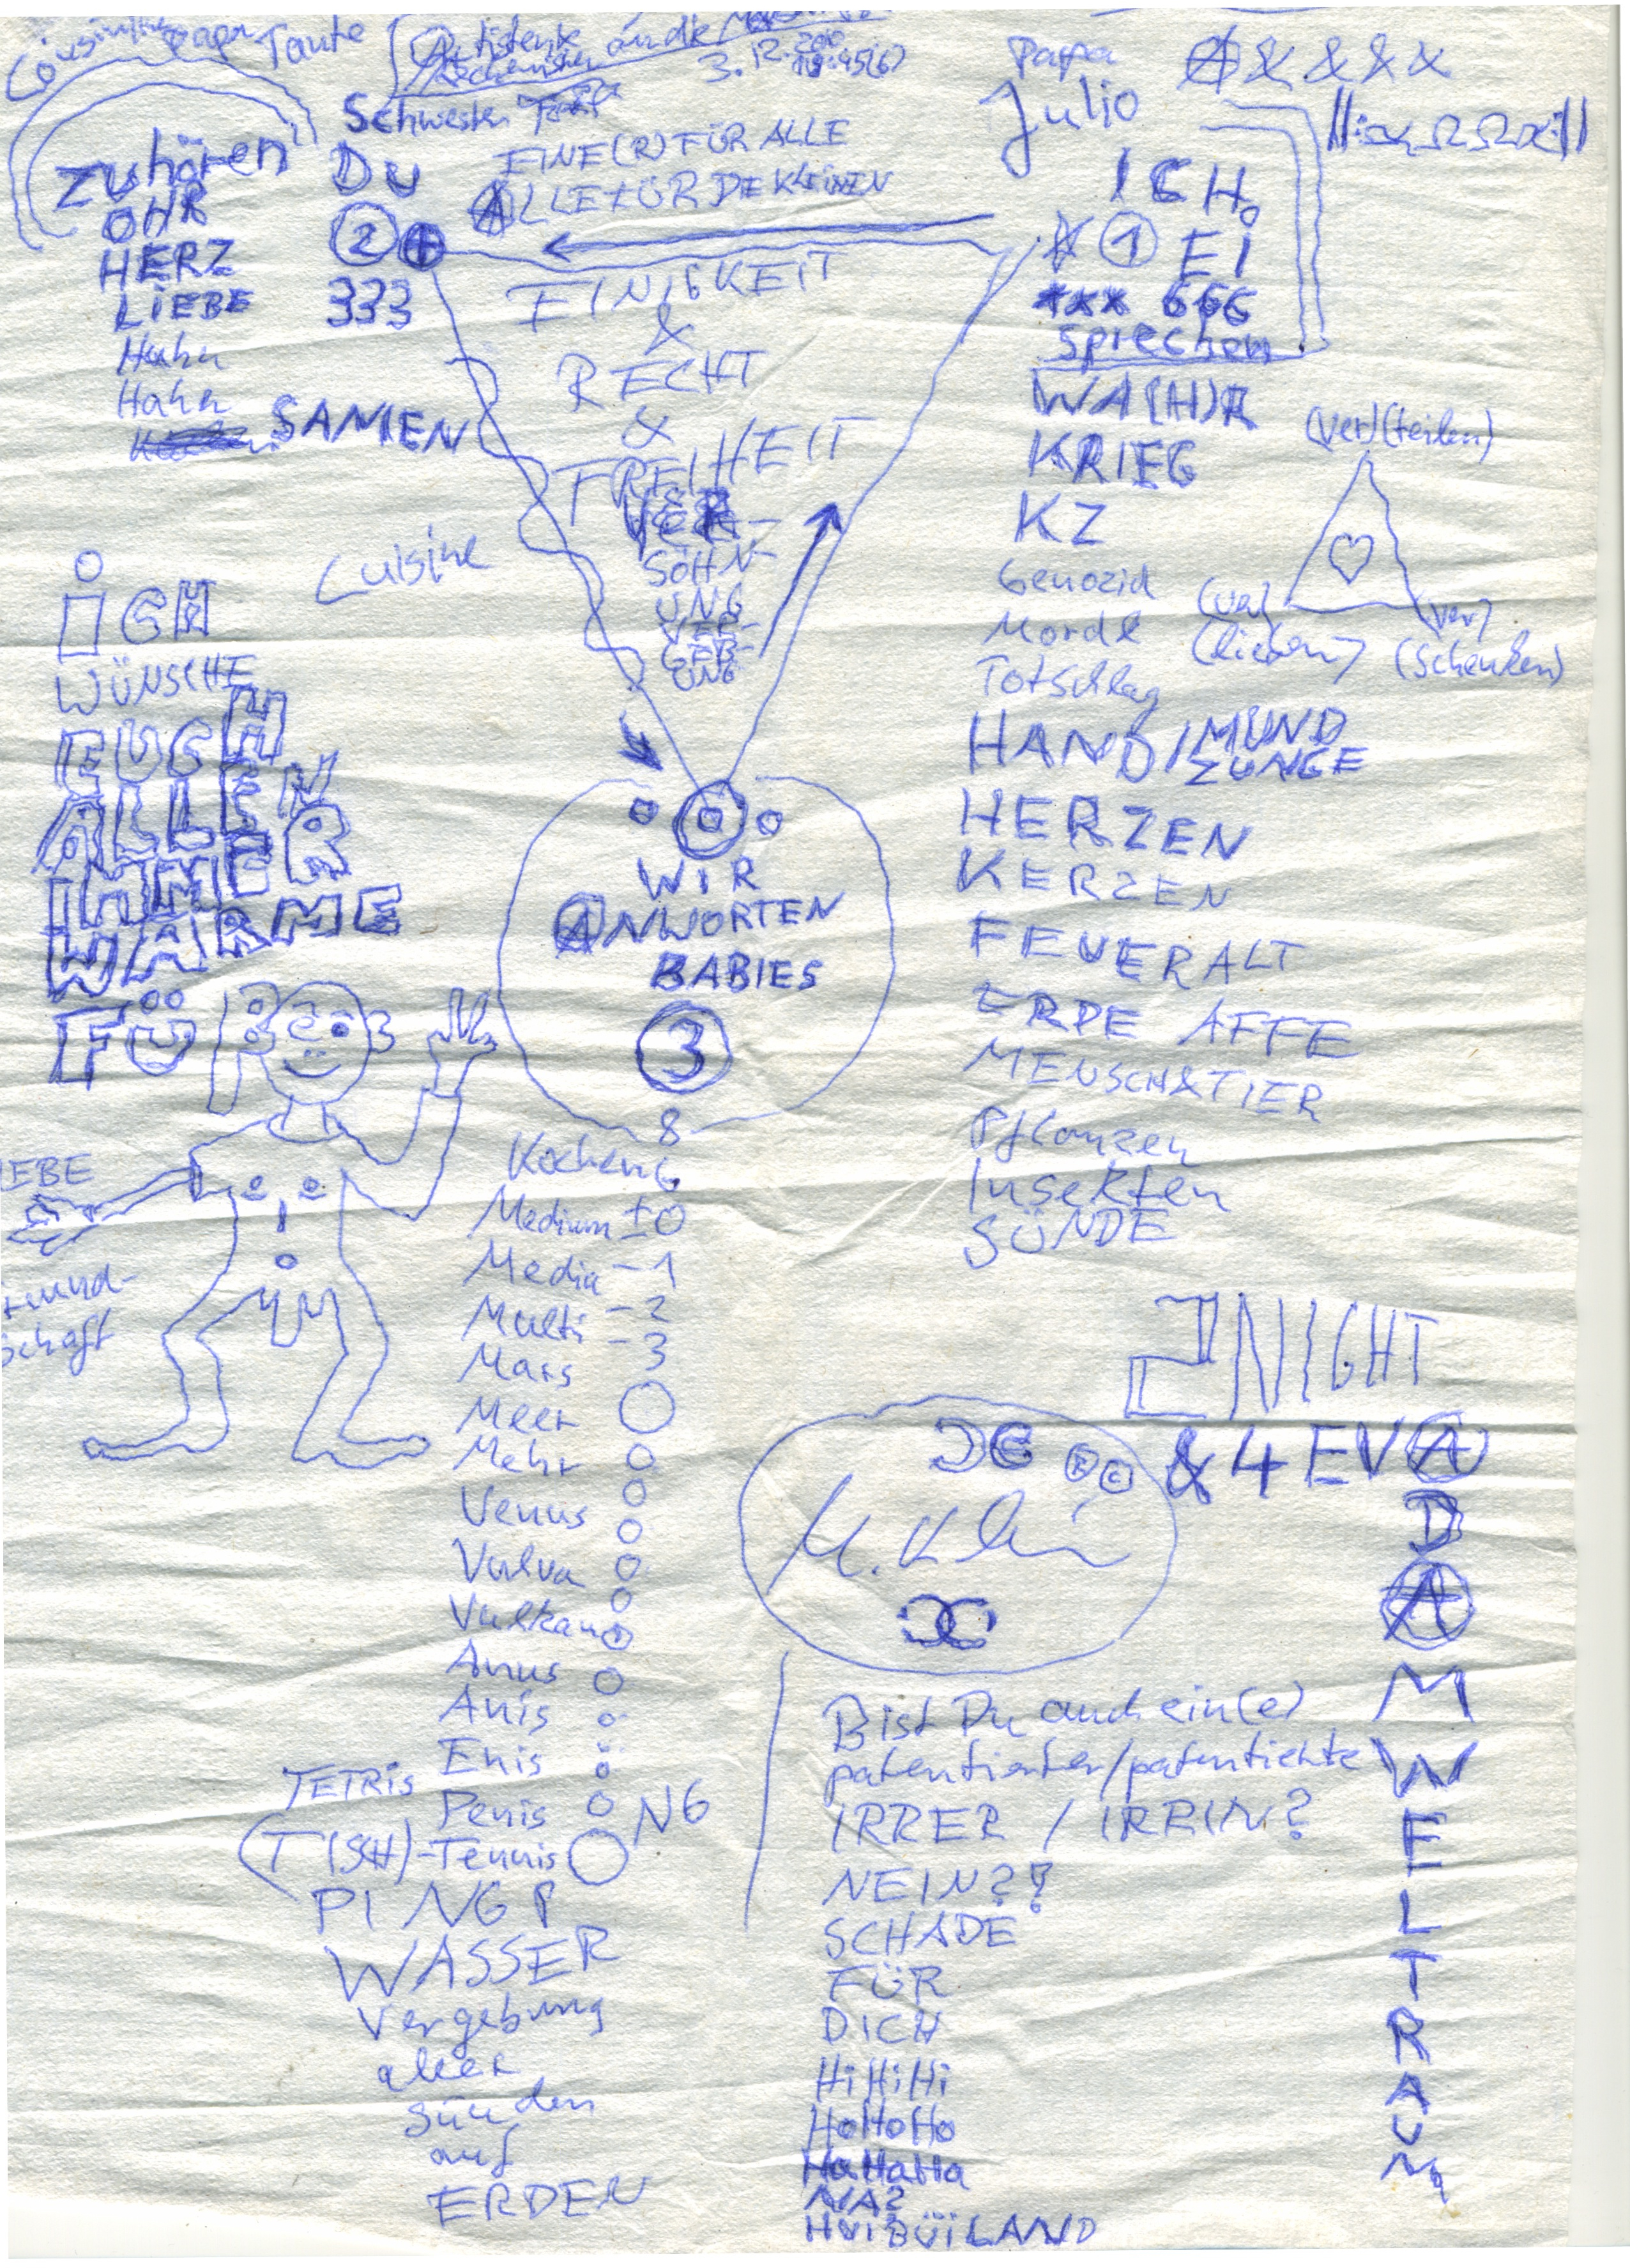 Tante
3. 12. 2010
Papa
& & & &
Schwester
Julio
Zuhören
OHR
HERZ
LIEBE
Hahn
Hahn
SAMEN
DU
2
333
EINE(R) FÜR ALLE
ALLE FÜR DE KLEINEN
ICH
1 EI
xxx 666
Sprechen
EINIGKEIT
&
RECHT
&
FREIHEIT
VER-
SÖHN-
UNG
VER-
GEB-
UNG
WA(H)R
KRIEG
KZ
Genozid
Morde
Totschlag
HAND/MUND
ZUNGE
HERZEN
KERZEN
FEUER ALT
ERDE AFFE
MENSCH & TIER
Pflanzen
Insekten
SÜNDE
(ver)(teilen)
(ver)
(lieben)
(ver)
(schenken)
Cuisine
iCH
WÜNSCHE
EUCH
ALLEN
IMMER
WÄRME
FÜR
WIR
ANWORTEN
BABIES
3
8
EBE
schaft
Kochen 6
Medium ±0
Media -1
Multi -2
Mars -3
Meer
Mehr
Venus
Vulva
Vulkan
Anus
Anis
Enis
TETRiS
Penis
NG
(TISCH)-Tennis
PING P
WASSER
Vergebung
aller
Sünden
auf
ERDEN
2NIGHT
& 4 EVA
D
A
M
W
E
L
T
R
A
U
M
Bist Du auch ein(e)
patentierter/patentierte
IRRER / IRRIN?
NEIN??
SCHADE
FÜR
DICH
HiHiHi
HoHoHo
HaHaHa
NA?
HUIBÜILAND